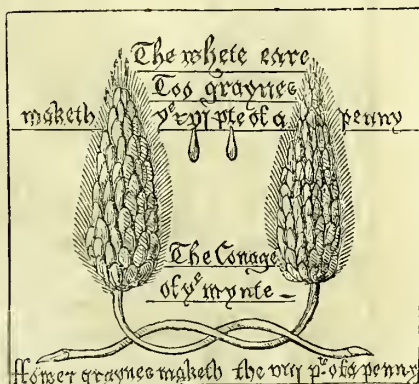 The whete eare
Too graynes
maketh yᵉ xvi pte of a penny
The Conage
of yᵉ mynte
ffower graynes maketh the viii pᵗ of a penny